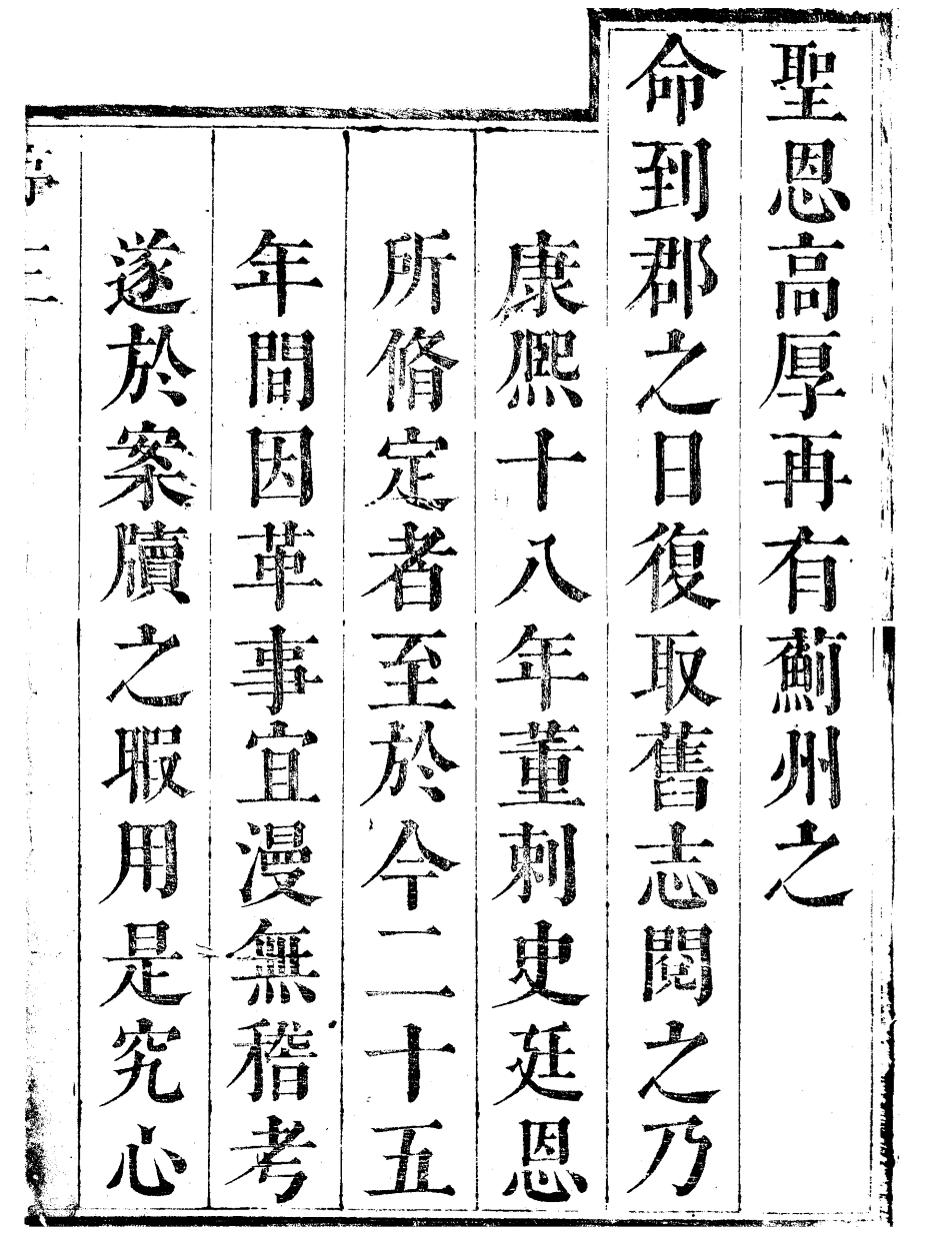 聖恩高厚再有薊州之
命到郡之日復取舊志閱之乃
康熙十八年董刺史廷恩
所脩定者至於今二十五
年間因革事宜漫無稽考
遂於案牘之暇用是究心
序 三